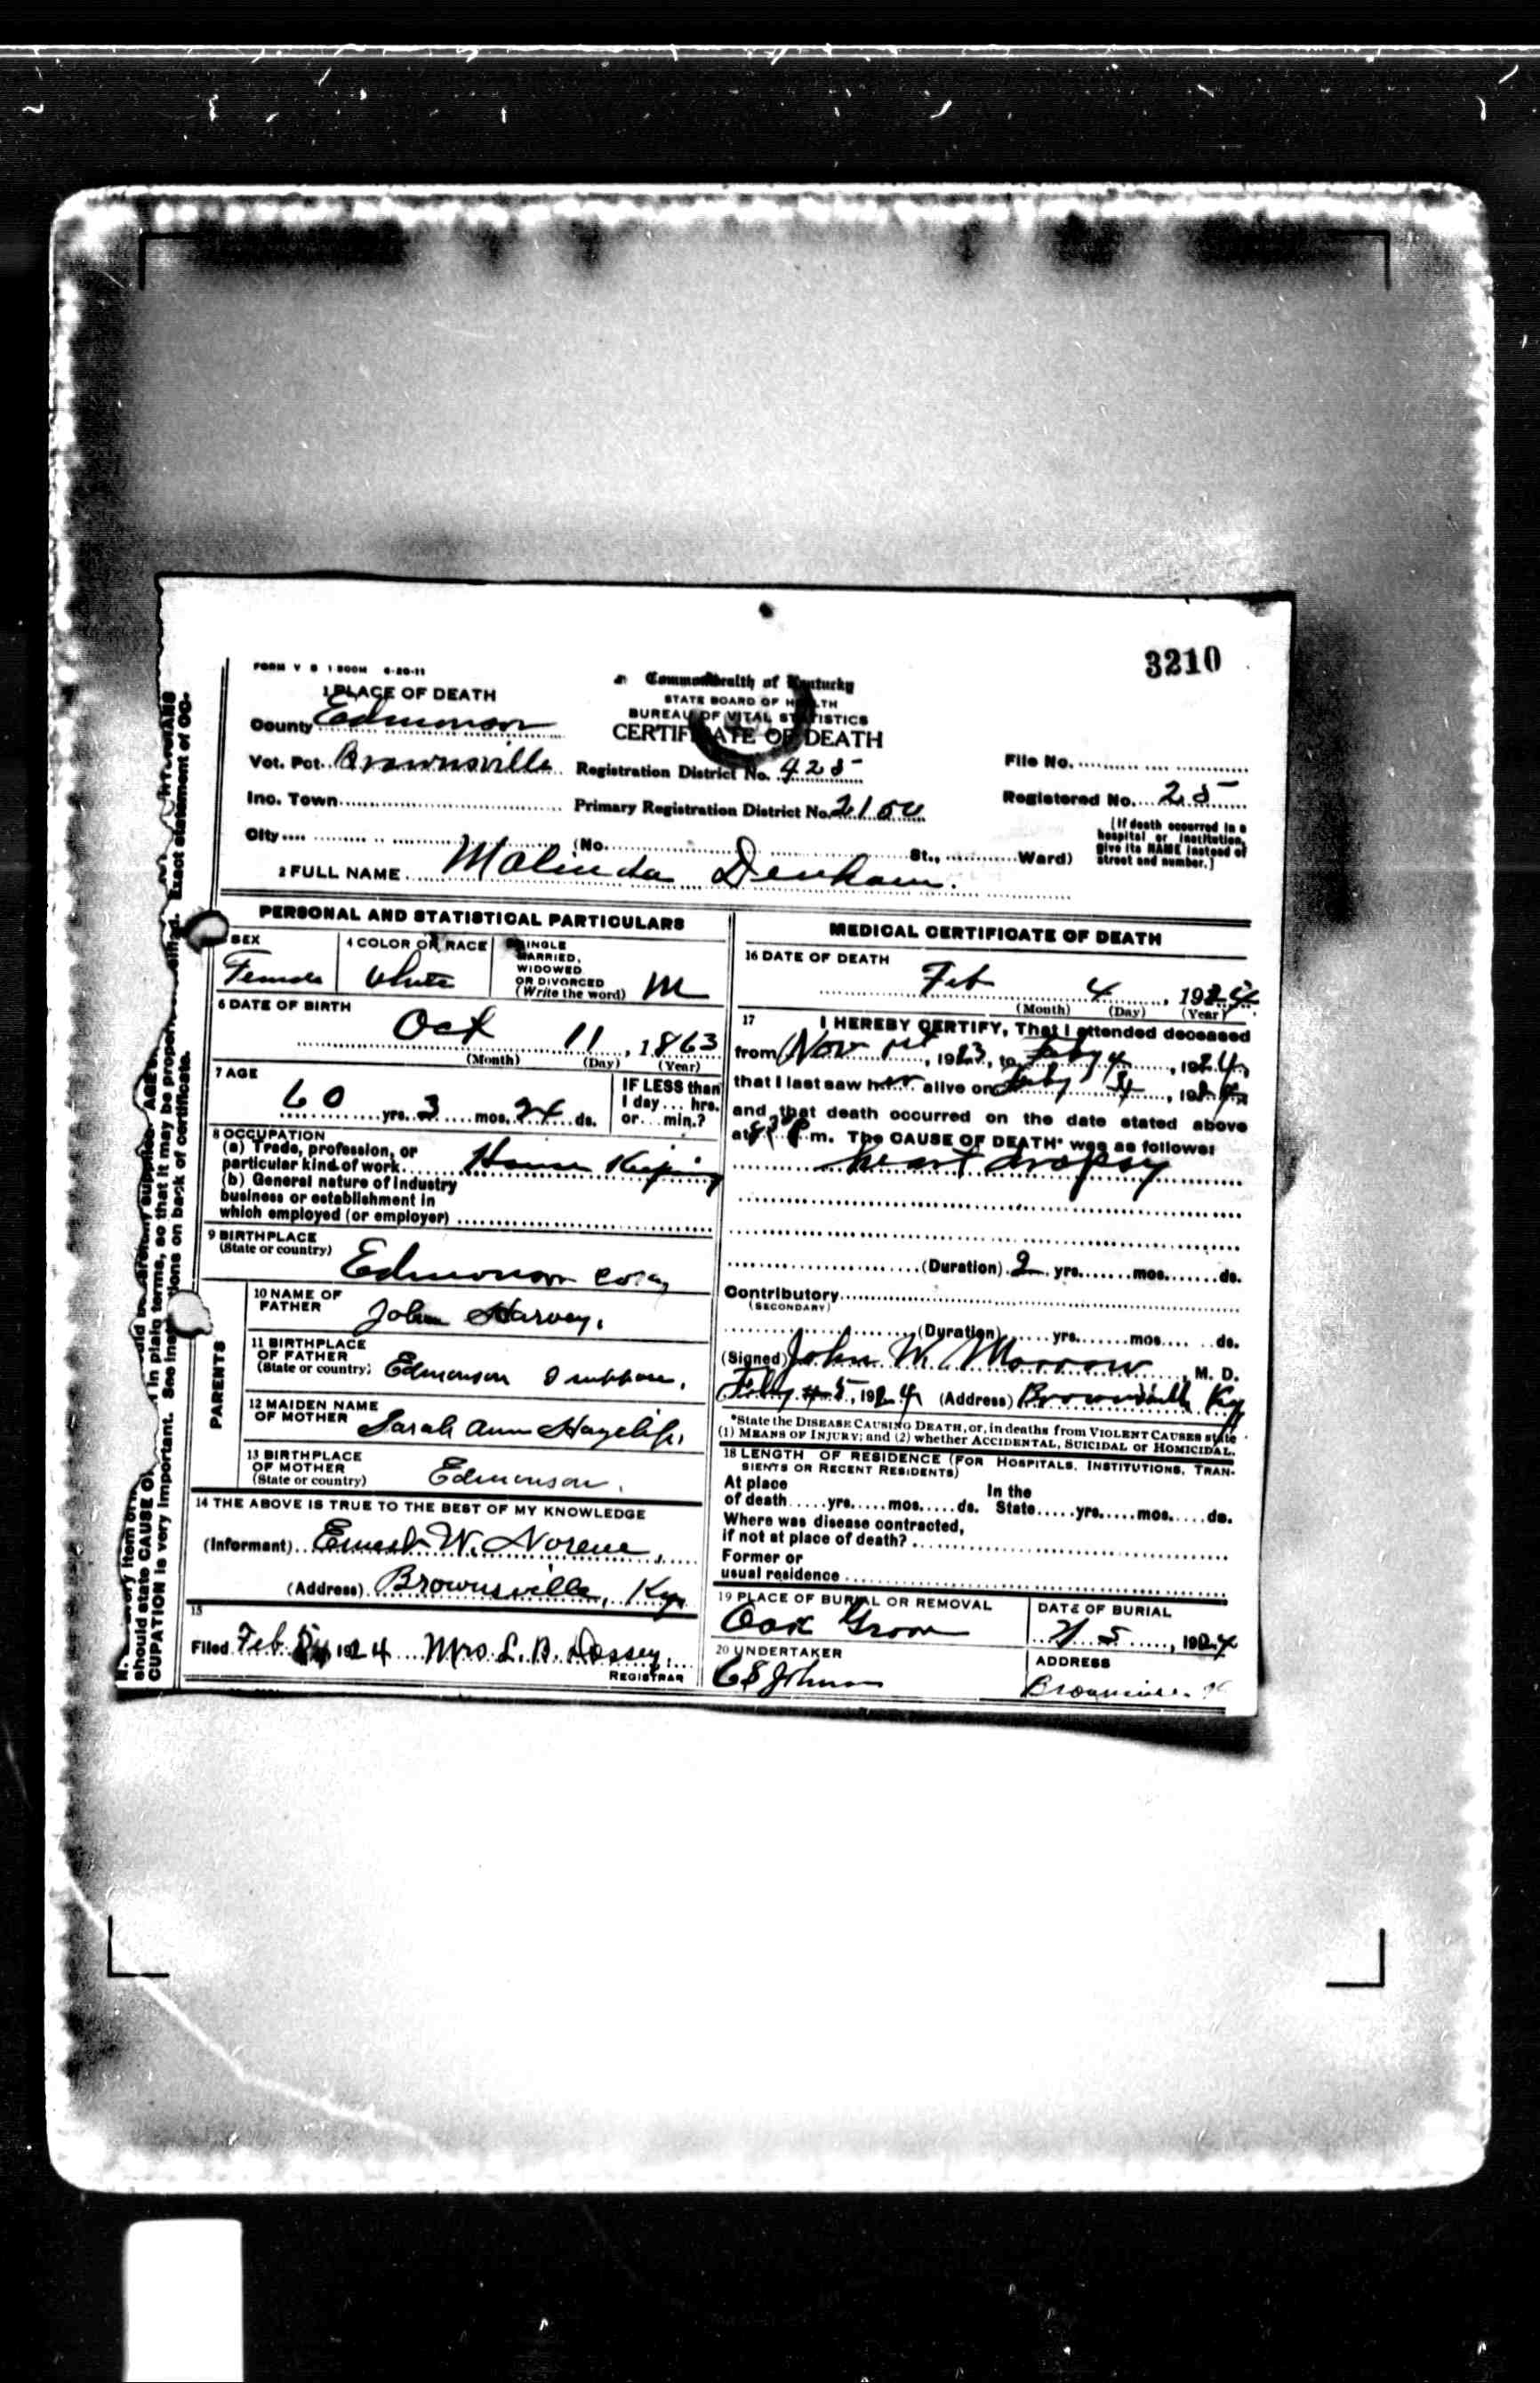 3210
FORM V S 1 500M 6-20-11
Commonwealth of Kentucky
STATE BOARD OF HEALTH
BUREAU OF VITAL STATISTICS
CERTIFICATE OF DEATH
1 PLACE OF DEATH
County Edmonson
Vot. Pct. Brownsville Registration District No. 425 File No.
Inc. Town Primary Registration District No. 2150 Registered No. 25
City (No. St., Ward)
[If death occurred in a
hospital or institution,
give its NAME instead of
street and number.]
2 FULL NAME Malinda Denham.
PERSONAL AND STATISTICAL PARTICULARS
SEX
Female
4 COLOR OR RACE
White
SINGLE
MARRIED,
WIDOWED
OR DIVORCED
(Write the word) M
6 DATE OF BIRTH
Oct 11, 1863
(Month) (Day) (Year)
7 AGE
60 yrs. 3 mos. 24 ds.
IF LESS than
1 day... hrs.
or... min.?
8 OCCUPATION
(a) Trade, profession, or
particular kind of work House Keeping
(b) General nature of industry
business or establishment in
which employed (or employer)
9 BIRTHPLACE
(State or country)
Edmonson
PARENTS
10 NAME OF
FATHER
John Harvey.
11 BIRTHPLACE
OF FATHER
(State or country) Edmonson I suppose.
12 MAIDEN NAME
OF MOTHER
Sarah Ann Hayclip.
13 BIRTHPLACE
OF MOTHER
(State or country)
Edmonson.
14 THE ABOVE IS TRUE TO THE BEST OF MY KNOWLEDGE
(Informant) Ernest W.
(Address) Brownsville, Ky.
15
Filed Feb 1924 Mrs. L. B. Dossey.
REGISTRAR
MEDICAL CERTIFICATE OF DEATH
16 DATE OF DEATH
Feb 4, 1924
(Month) (Day) (Year)
17 I HEREBY CERTIFY, That I attended deceased
from Nov 1st, 1923, to Feby 4, 1924,
that I last saw her alive on Feby 4, 1924
and that death occurred on the date stated above
at m. The CAUSE OF DEATH* was as follows:
heart dropsy
(Duration) 2 yrs. mos. ds.
Contributory
(SECONDARY)
(Duration) yrs. mos. ds.
(Signed) John W. Morrow, M. D.
Feby 5, 1924 (Address) Brownsville Ky
*State the DISEASE CAUSING DEATH, or, in deaths from VIOLENT CAUSES state
(1) MEANS OF INJURY; and (2) whether ACCIDENTAL, SUICIDAL or HOMICIDAL.
18 LENGTH OF RESIDENCE (FOR HOSPITALS, INSTITUTIONS, TRAN-
SIENTS OR RECENT RESIDENTS)
At place In the
of death yrs. mos. ds. State yrs. mos. ds.
Where was disease contracted,
if not at place of death?
Former or
usual residence
19 PLACE OF BURIAL OR REMOVAL
Oak Grove
DATE OF BURIAL
5, 1924
20 UNDERTAKER
Johnson
ADDRESS
Brownsville
should state CAUSE O in plain terms, so that it may be proper
CUPATION is very important. See tions on back of certificate.
Exact statement of OC-